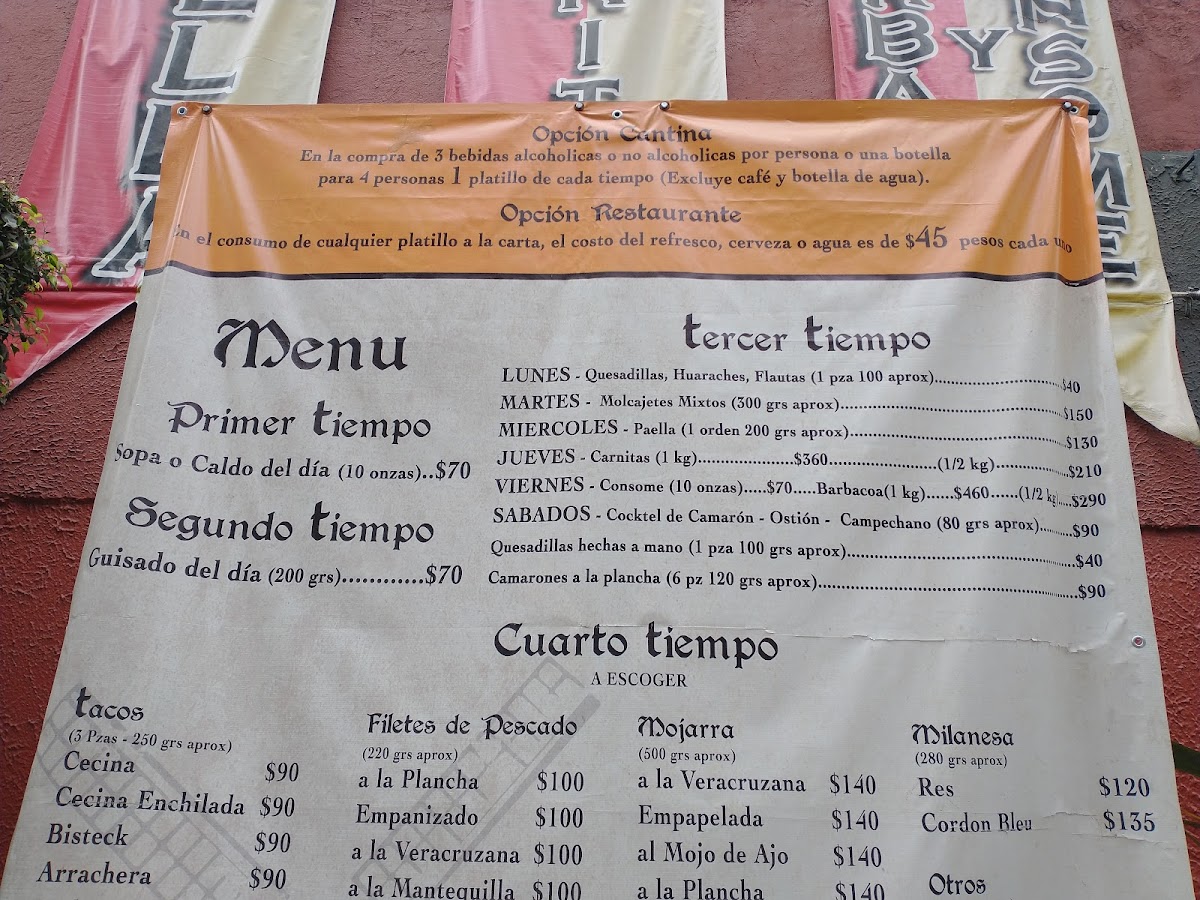 Opción Cantina
En la compra de 3 bebidas alcoholicas o no alcoholicas por persona o una botella
para 4 personas 1 platillo de cada tiempo (Excluye café y botella de agua).
Opción Restaurante
En el consumo de cualquier platillo a la carta, el costo del refresco, cerveza o agua es de $45 pesos cada uno
Menu
Primer tiempo
Sopa o Caldo del día (10 onzas)..$70
Segundo tiempo
Guisado del día (200 grs).............$70
tercer tiempo
LUNES - Quesadillas, Huaraches, Flautas (1 pza 100 aprox)..............................$40
MARTES - Molcajetes Mixtos (300 grs aprox)..................................................$150
MIERCOLES - Paella (1 orden 200 grs aprox)..................................................$130
JUEVES - Carnitas (1 kg)....................$360.......................(1/2 kg)..................$210
VIERNES - Consome (10 onzas).....$70.....Barbacoa(1 kg)......$460......(1/2 kg)....$290
SABADOS - Cocktel de Camarón - Ostión - Campechano (80 grs aprox)..........$90
Quesadillas hechas a mano (1 pza 100 grs aprox)..................................................$40
Camarones a la plancha (6 pz 120 grs aprox)........................................................$90
Cuarto tiempo
A ESCOGER
tacos
(3 Pzas - 250 grs aprox)
Cecina $90
Cecina Enchilada $90
Bisteck $90
Arrachera $90
Filetes de Pescado
(220 grs aprox)
a la Plancha $100
Empanizado $100
a la Veracruzana $100
a la Mantequilla $100
Mojarra
(500 grs aprox)
a la Veracruzana $140
Empapelada $140
al Mojo de Ajo $140
a la Plancha $140
Milanesa
(280 grs aprox)
Res $120
Cordon Bleu $135
Otros